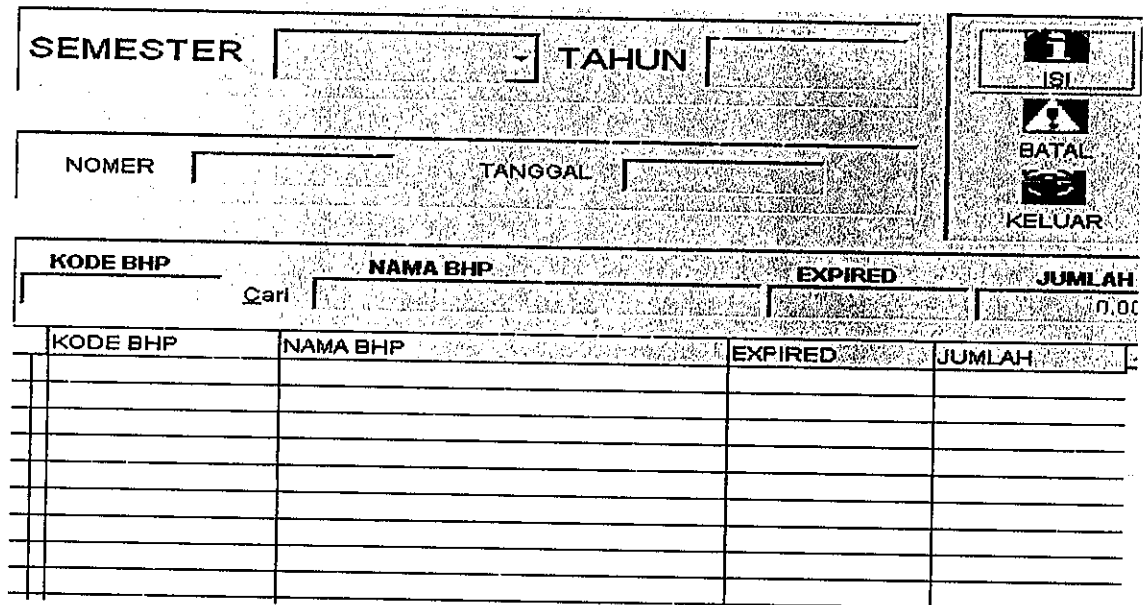 SEMESTER TAHUN
ISI
BATAL
NOMER TANGGAL
KELUAR
KODE BHP NAMA BHP EXPIRED JUMLAH
Cari 0.00
KODE BHP NAMA BHP EXPIRED JUMLAH